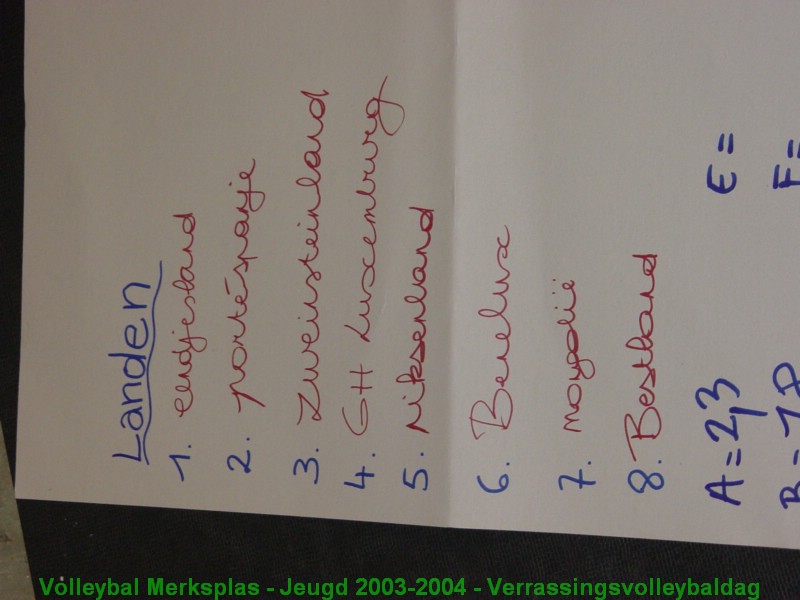 Landen
1. eendjesland
2. portéspanje
3. zweinsteinland
4. GH Luxemburg
5. niksenland
6. Benelux
7. moyolië
8. Bestland
A = 2,3
E =
B = 7,8
F =
Volleybal Merksplas - Jeugd 2003-2004 - Verrassingsvolleybaldag